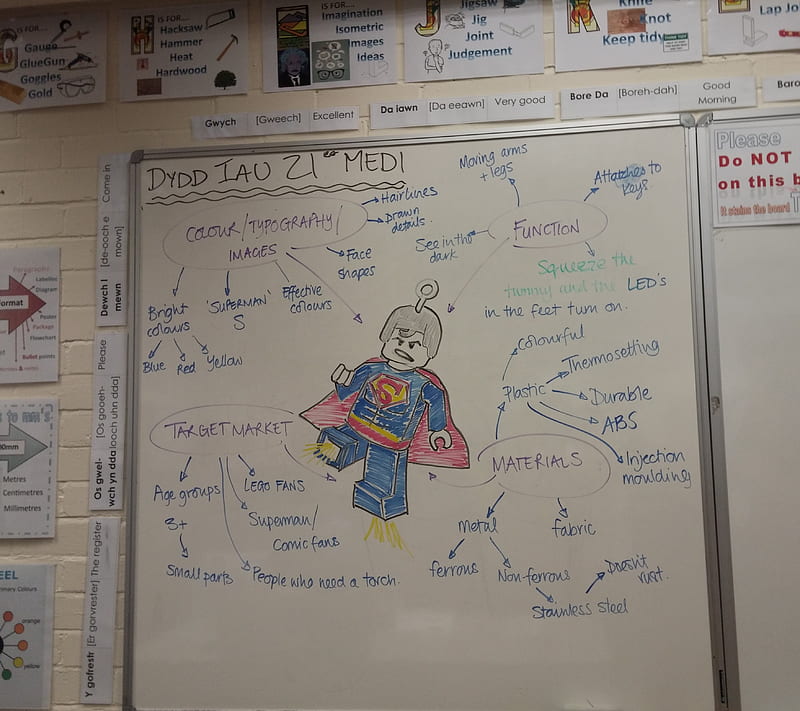 IS FOR....
Gauge
GlueGun
Goggles
Gold
H IS FOR....
Hacksaw
Hammer
Heat
Hardwood
IS FOR....
Imagination
Isometric
Images
Ideas
Jigsaw
Jig
Joint
Judgement
Knife
Knot
Keep tidy
Lap Jo
Gwych [Gweech] Excellent
Da iawn [Da eeawn] Very good
Bore Da [Boreh-dah] Good Morning
Please
Do NOT
on this b
It stains the board
Dewch I mewn [de-ooch e mown] Come in
Os gwel-wch yn dda [Os gooeh-looch uhn dda] Please
Y gofrestr [Er gorvrester] The register
Paragraphs
format
Labelled
Diagram
Poster
Package
Flowchart
Bullet points
to mm's
Metres
Centimetres
Millimetres
orange
yellow
DYDD IAU 21ain MEDI
COLOUR/TYPOGRAPHY/
IMAGES
Hairlines
Drawn
details.
Face
shapes
Effective
colours
'SUPERMAN'
S
Bright
colours
Blue
Red
Yellow
FUNCTION
Moving arms
+ legs
Attatches to
keys.
See in the
dark
Squeeze the
tummy and the LED's
in the feet turn on.
S
TARGET MARKET
Age groups
3+
Small parts
LEGO FANS
Superman/
Comic fans
People who need a torch.
MATERIALS
Plastic
colourful
Thermosetting
Durable
ABS
Injection
moulding
Metal
ferrous
Non-ferrous
Stainless steel
Doesn't
rust.
fabric